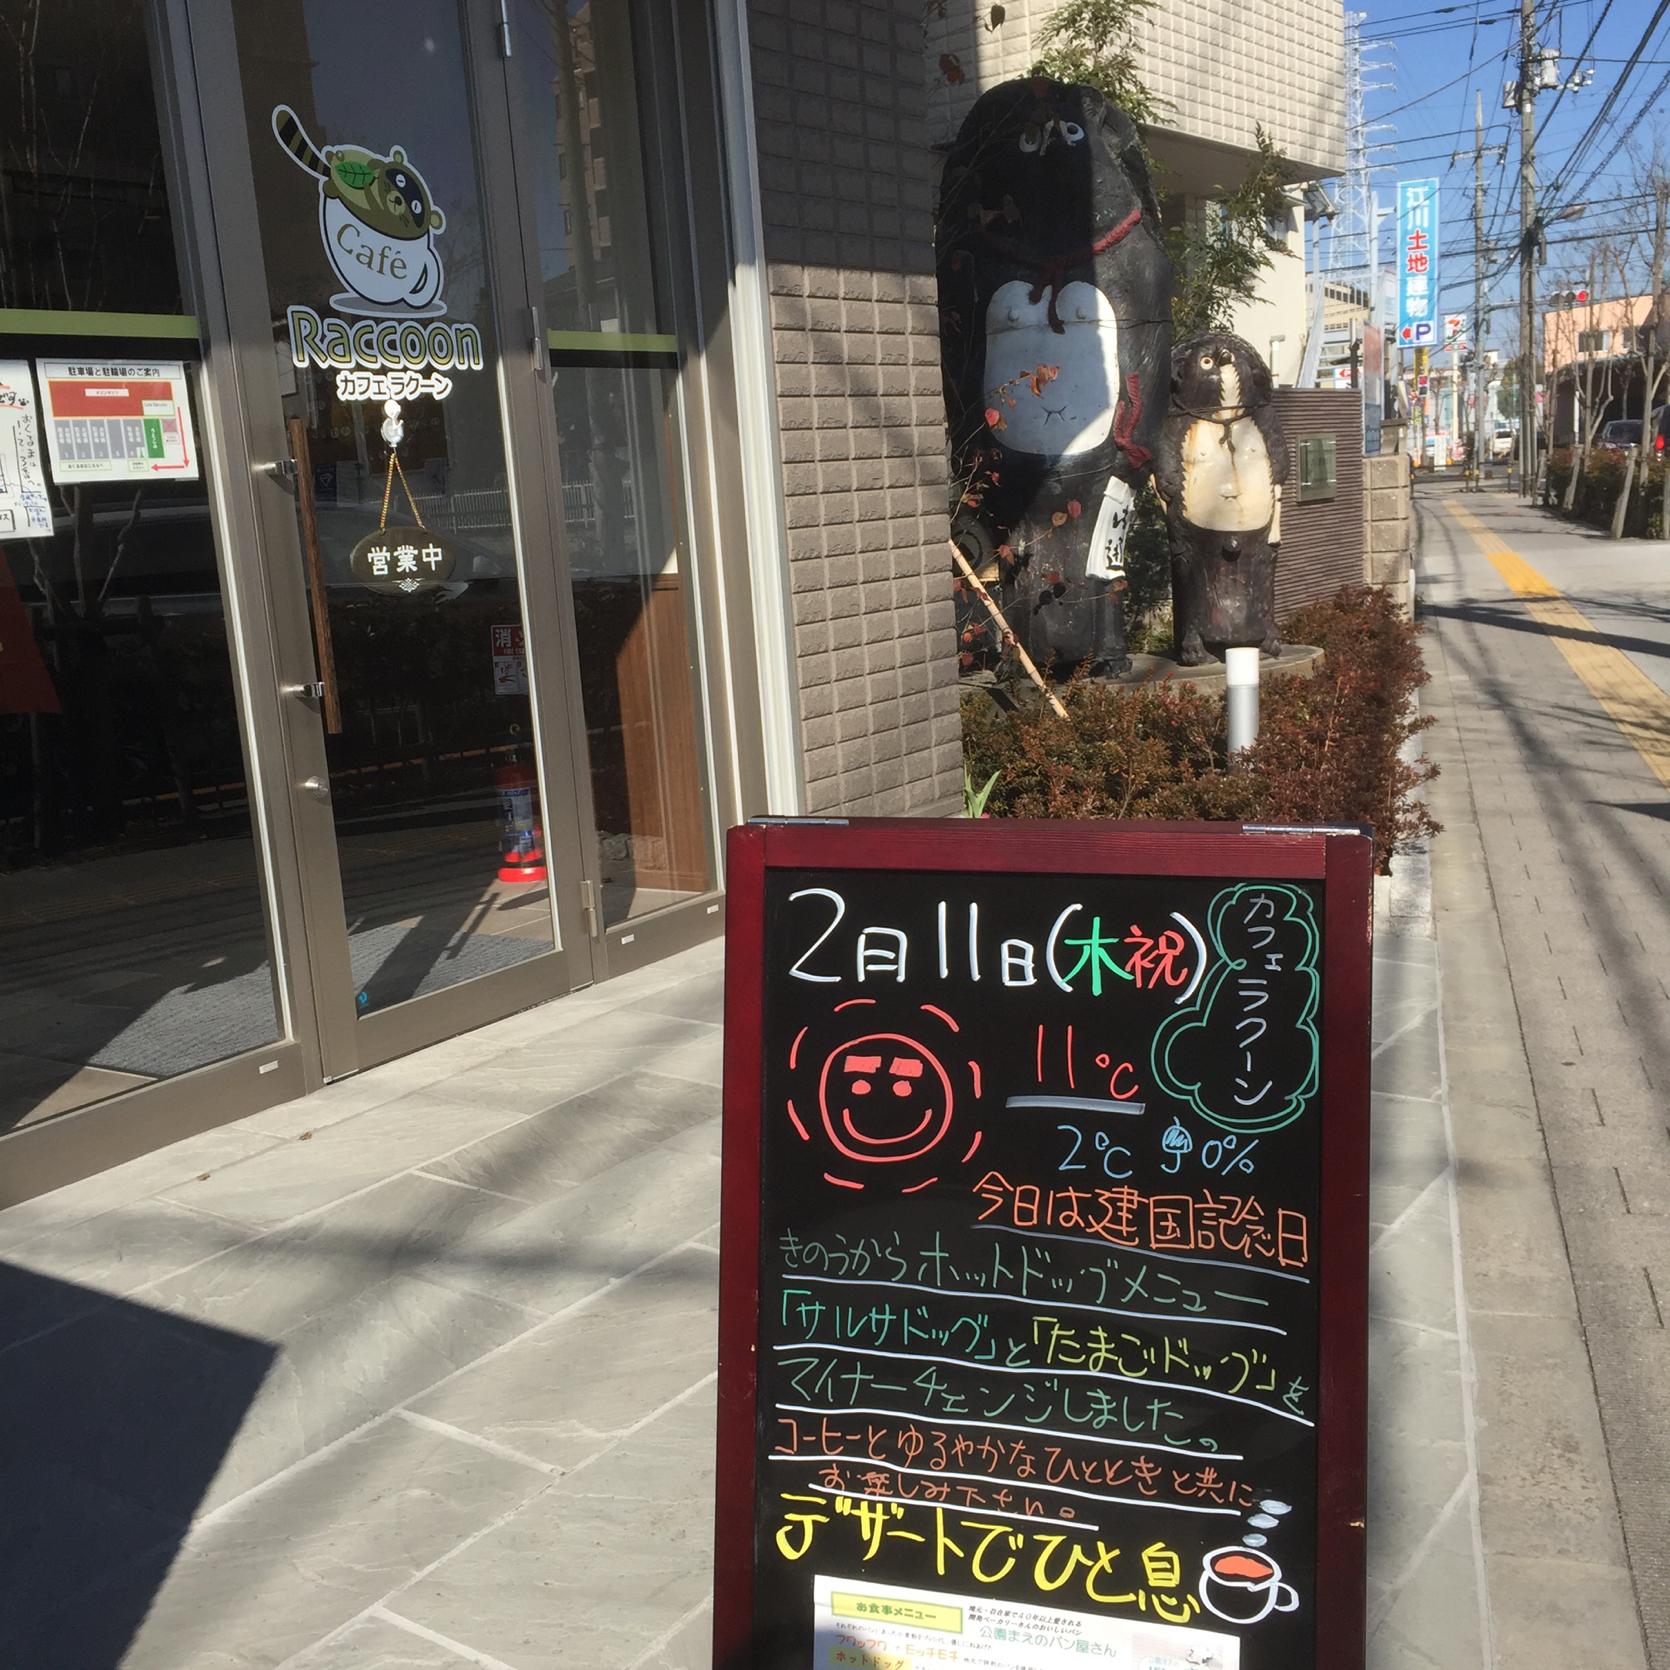 Café
Raccoon
カフェ ラクーン
営業中
駐車場と駐輪場のご案内
江川土地建物
P
2月11日(木祝)
カフェラクーン
11℃
2℃ 0%
今日は建国記念日
きのうからホットドッグメニュー
「サルサドッグ」と「たまごドッグ」を
マイナーチェンジしました。
コーヒーとゆるやかなひとときと共に
お楽しみ下さい。
デザートでひと息
お食事メニュー
地元・百合家で40年以上愛される
開発ベーカリーさんのおいしいパン
公園まえのパン屋さん
フワッフワ モッチモチ
ホットドッグ